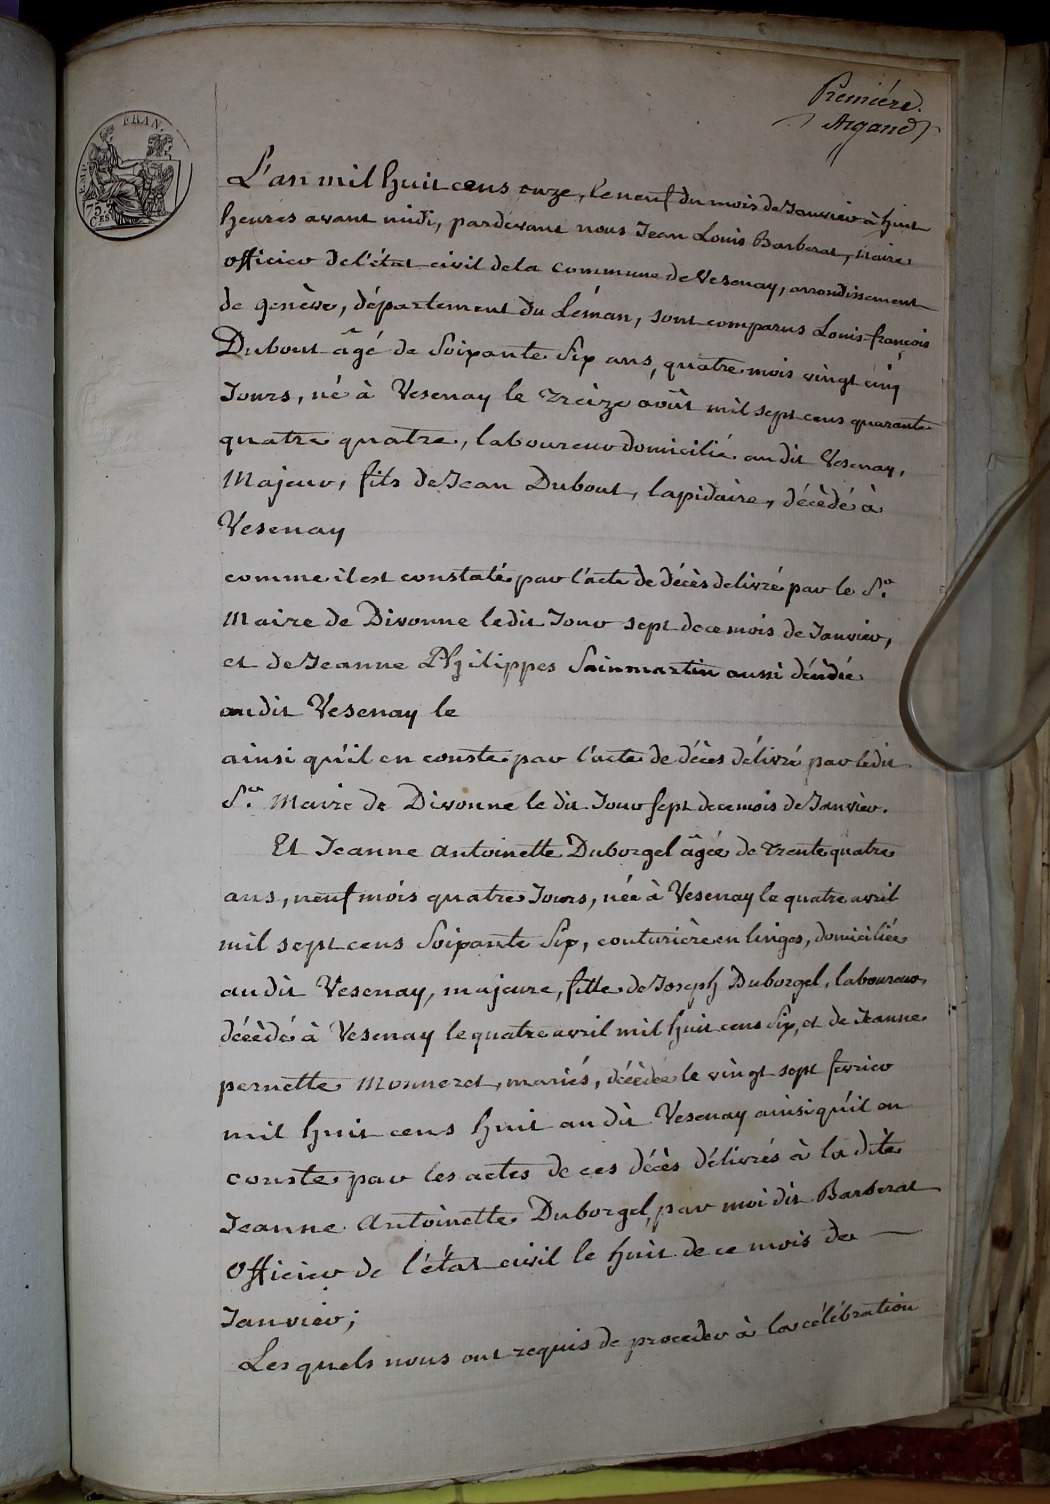 Première.
Argand
FRAN.
75.
CES
L'an mil huit cens onze, le neuf du mois de Janvier à huit
heures avant midi, pardevant nous Jean Louis Barberat, Maire
officier de l'état civil de la commune de Vesenay, arrondissement
de genève, département du Léman, sont comparus Louis-françois
Dubout âgé de Soixante Six ans, quatre mois vingt cinq
Jours, né à Vesenay le treize août mil sept cens quarante
quatre quatre, laboureur domicilié au dit Vesenay,
Majeur, fils de Jean Dubout, lapidaire, décédé à
Vesenay
comme il est constaté par l'acte de décès délivré par le Sr.
Maire de Divonne ledit Jour sept de ce mois de Janvier,
et de Jeanne Philippes Sainmartin aussi décédée
audit Vesenay le
ainsi qu'il en conste par l'acte de décès délivré par ledit
Sr. Maire de Divonne le dit Jour sept de ce mois de Janvier.
Et Jeanne Antoinette Duborgel âgée de trente quatre
ans, neuf mois quatre Jours, née à Vesenay le quatre avril
mil sept cens Soixante Six, couturière en linges, domiciliée
au dit Vesenay, majeure, fille de Joseph Duborgel, laboureur,
décédé à Vesenay le quatre avril mil huit cens Six, et de Jeanne
pernette Monneret, mariés, décédée le vingt sept fevrier
mil huit cens huit au dit Vesenay ainsi qu'il en
conste par les actes de ces décès délivrés à la dite
Jeanne Antoinette Duborgel, par moi dit Barberat
Officier de l'état civil le huit de ce mois de
Janvier;
Les quels nous ont requis de proceder à la célébration